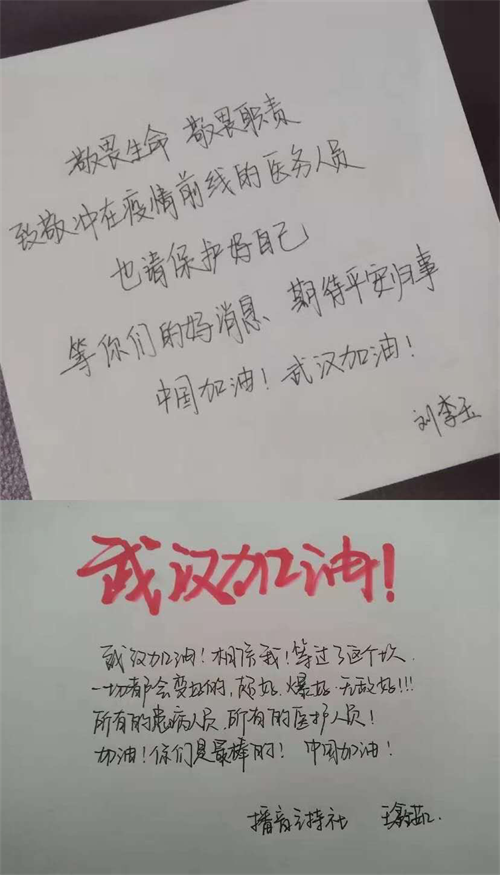 敬畏生命 敬畏职责
致敬冲在疫情前线的医务人员
也请保护好自己
等你们的好消息、期待平安归事
中国加油！武汉加油！
刘李玉
武汉加油！
武汉加油！相信我！等过了这个坎
一切都会变好的，超好．爆好．无敌好!!!
所有的患病人员．所有的医护人员！
加油！你们是最棒的！ 中国加油！
播音主持社